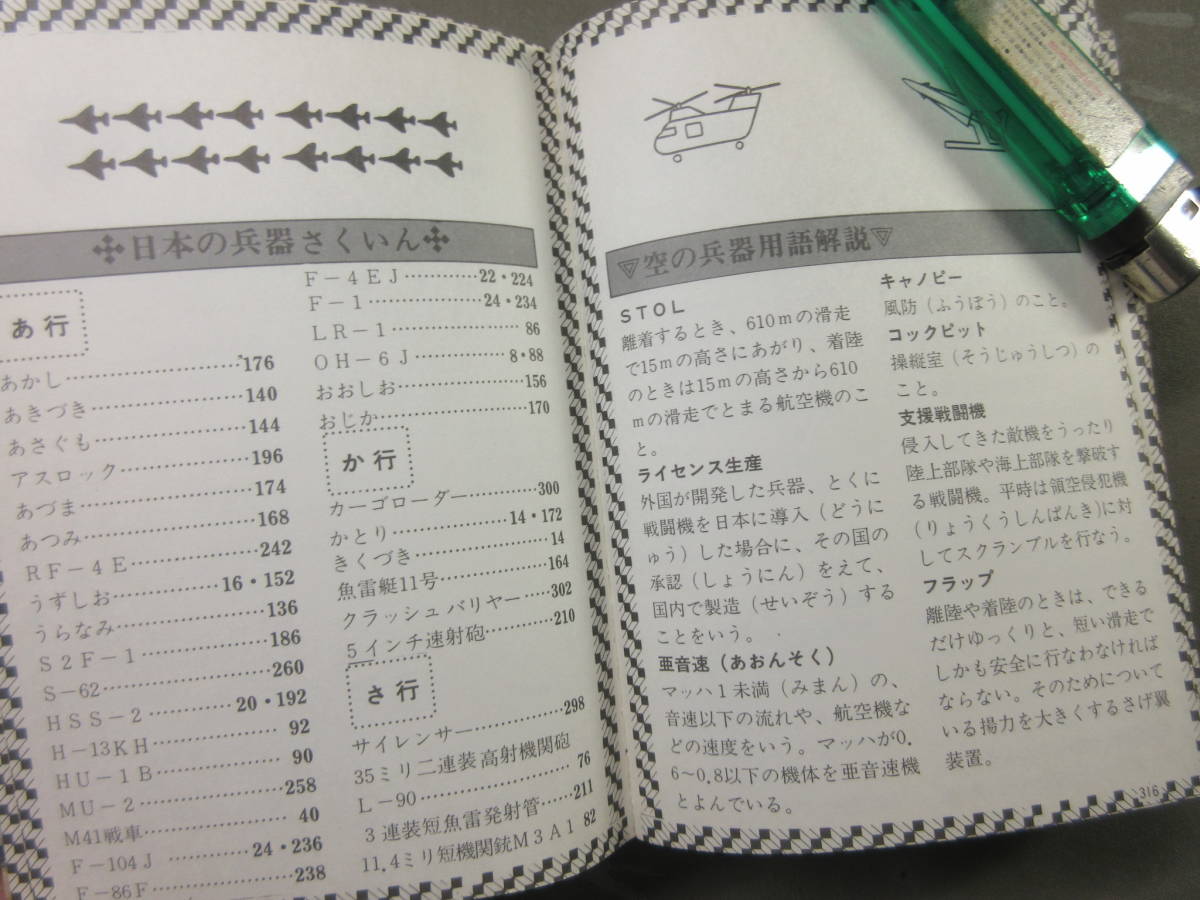 ✤日本の兵器さくいん✤
あ行
あかし…………176
あきづき…………140
あさぐも…………144
アスロック…………196
あづま…………174
あつみ…………168
RF-4E…………242
うずしお…………16・152
うらなみ…………136
S2F-1…………186
S-62…………260
HSS-2…………20・192
H-13KH…………92
HU-1B…………90
MU-2…………258
M41戦車…………40
F-104J…………24・236
F-86F…………238
F-4EJ…………22・224
F-1…………24・234
LR-1…………86
OH-6J…………8・88
おおしお…………156
おじか…………170
か行
カーゴローダー…………300
かとり…………14・172
きくづき…………14
魚雷艇11号…………164
クラッシュバリヤー……302
5インチ速射砲…………210
さ行
サイレンサー…………298
35ミリ二連装高射機関砲
L-90…………76
3連装短魚雷発射管……211
11.4ミリ短機関銃M3A1 82
空の兵器用語解説
STOL
離着するとき、610mの滑走
で15mの高さにあがり、着陸
のときは15mの高さから610
mの滑走でとまる航空機のこ
と。
ライセンス生産
外国が開発した兵器、とくに
戦闘機を日本に導入(どうに
ゅう)した場合に、その国の
承認(しょうにん)をえて、
国内で製造(せいぞう)する
ことをいう。
亜音速(あおんそく)
マッハ1未満(みまん)の、
音速以下の流れや、航空機な
どの速度をいう。マッハが0.
6~0.8以下の機体を亜音速機
とよんでいる。
キャノピー
風防(ふうぼう)のこと。
コックピット
操縦室(そうじゅうしつ)の
こと。
支援戦闘機
侵入してきた敵機をうったり
陸上部隊や海上部隊を撃破す
る戦闘機。平時は領空侵犯機
(りょうくうしんぱんき)に対
してスクランブルを行なう。
フラップ
離陸や着陸のときは、できる
だけゆっくりと、短い滑走で
しかも安全に行なわなければ
ならない。そのためについて
いる揚力を大きくするさげ翼
装置。
316